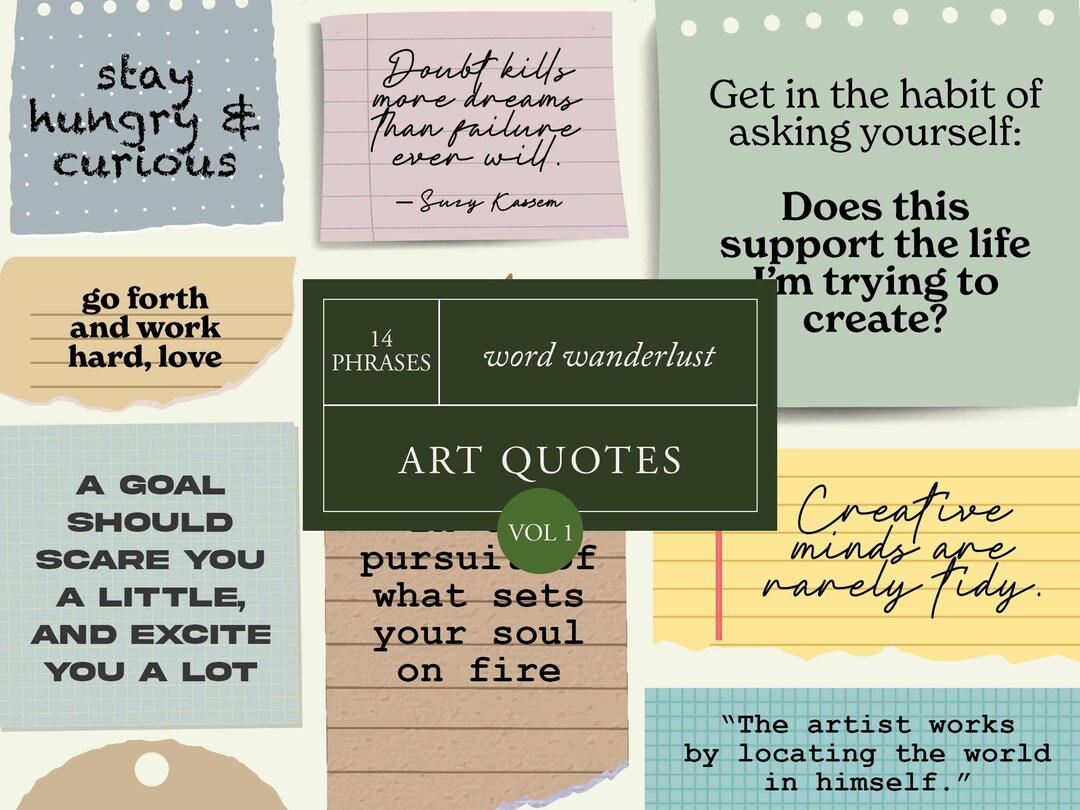 stay
hungry &
curious
Doubt kills
more dreams
than failure
ever will.
— Suzy Kassem
Get in the habit of
asking yourself:
Does this
support the life
I'm trying to
create?
go forth
and work
hard, love
14
PHRASES
word wanderlust
ART QUOTES
VOL 1
A GOAL
SHOULD
SCARE YOU
A LITTLE,
AND EXCITE
YOU A LOT
pursuit of
what sets
your soul
on fire
Creative
minds are
rarely tidy.
“The artist works
by locating the world
in himself.”